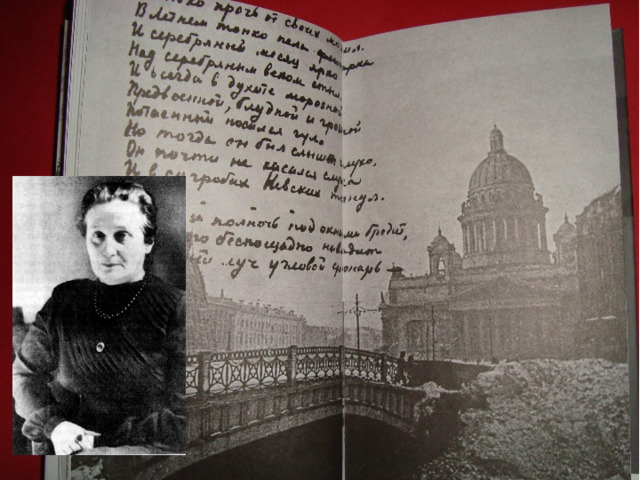 прочь от своих могил.
В Летнем тонко пела флюгарка
И серебряный месяц ярко
Над серебряным веком стыл.
И всегда в духоте морозной
Предвоенной, блудной и грозной
Потаенный носился гул
Но тогда он был слышен глухо,
Он почти не касался слуха
И в сугробах Невских тонул.
полночь под окнами бродит,
беспощадно наводит
луч угловой фонарь —